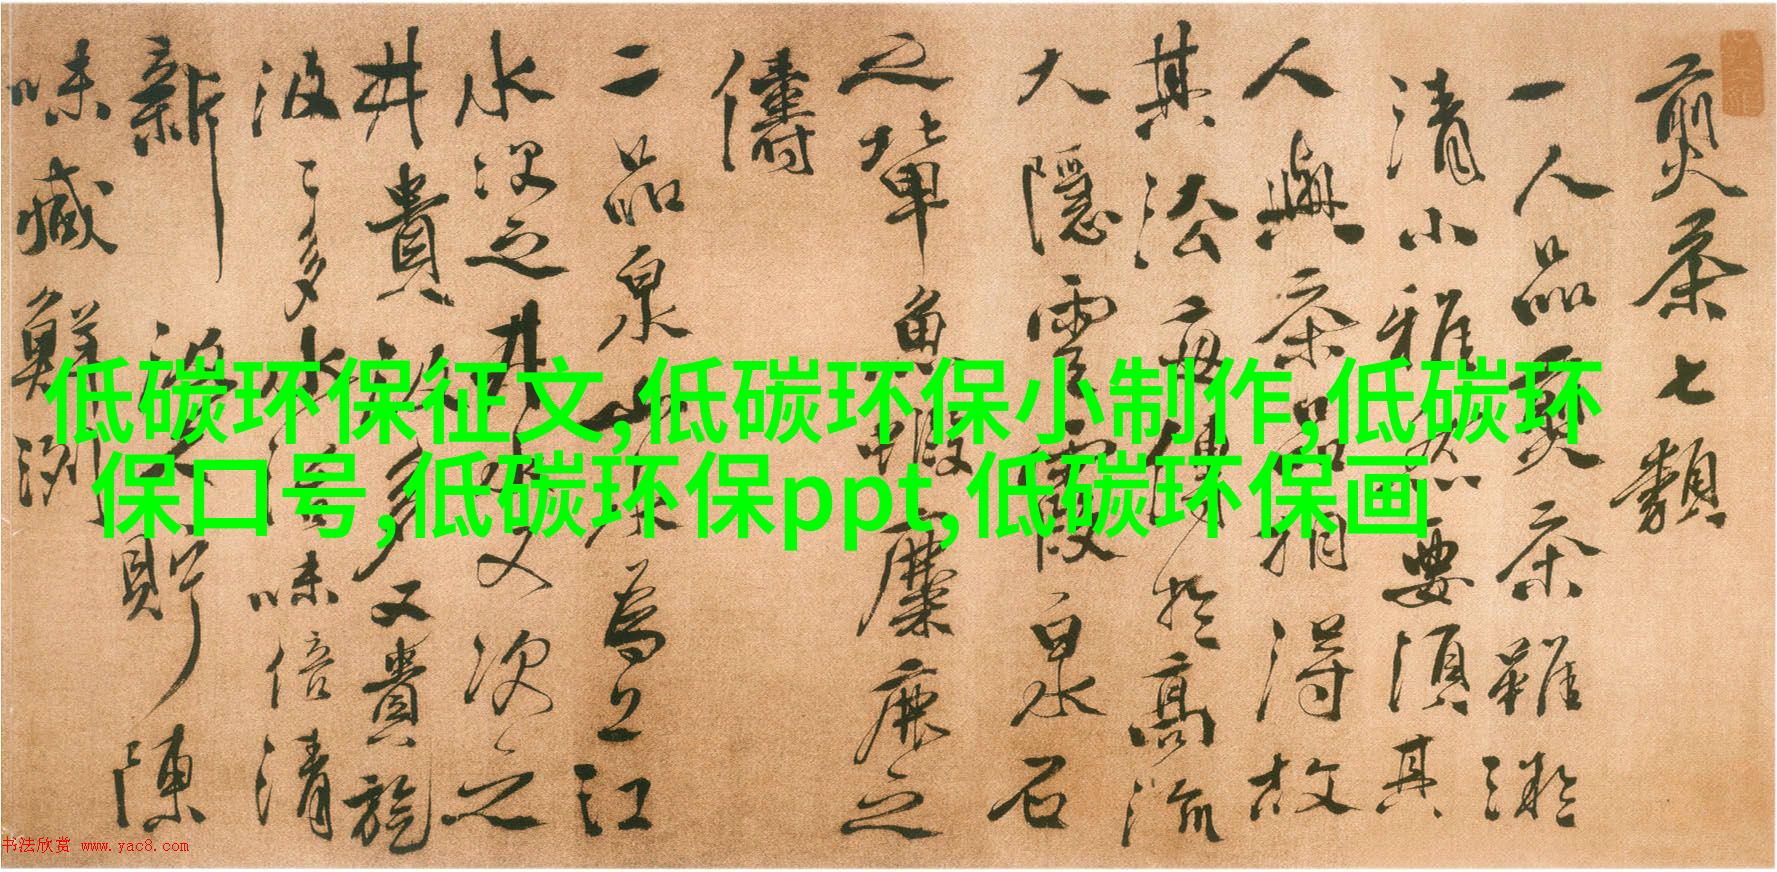 煎茶七類
一人品煎茶雖微
清小雅然要須其
人與茶品相得故
其法每傳於高流
大隱雲霞泉石
之輩魚蝦麋鹿之
儔
二品泉山水為上江
水次之井水又次之
井貴汲多又貴旋
汲〻多水活味倍清
新汲久貯陳
味減鮮洌
低碳环保征文,低碳环保小制作,低碳环
保口号,低碳环保ppt,低碳环保画
书法欣赏 www.yac8.com